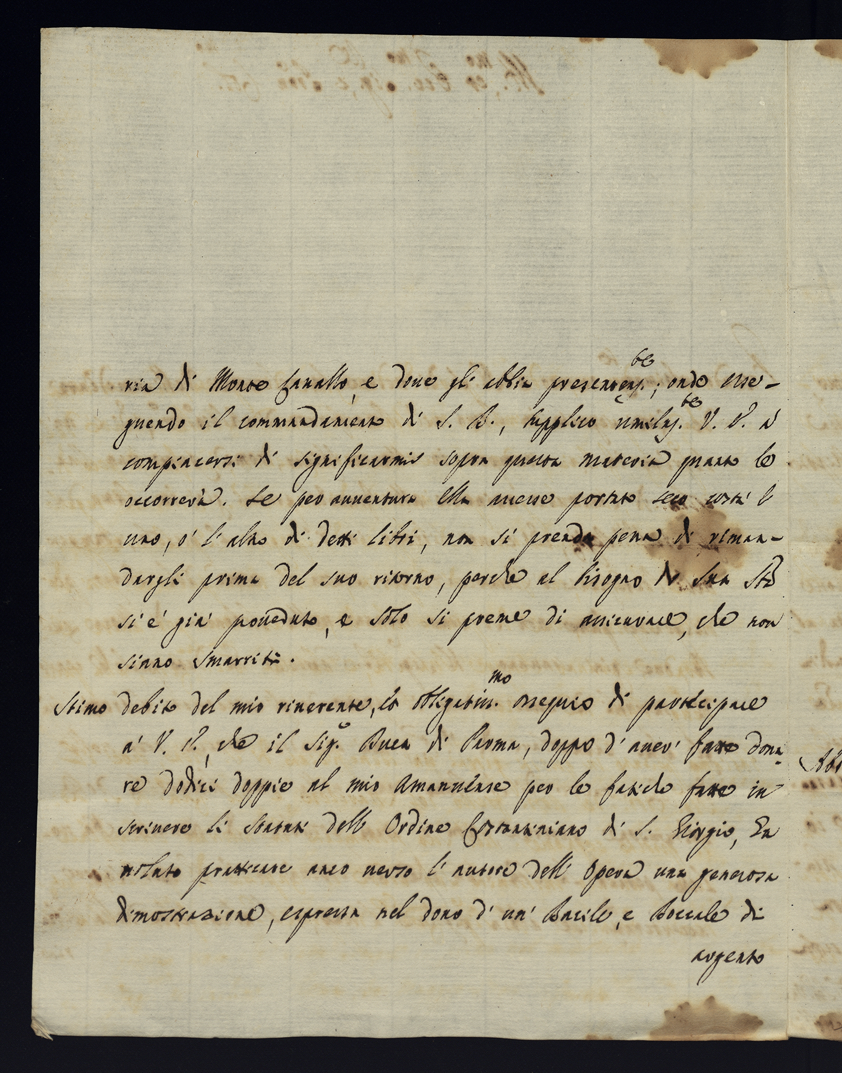 ria di Monte Cavallo, e dove gli abbia presentem.te; onde ese-
guendo il commandamento di S. B., supplico umilm.te V. P. à
compiacersi di significarmi sopra questa materia quanto le
occorrerà. Se per avventura ella avesse portato seco costà l'
uno, ò l'altro di detti libri, non si prenda pena di riman-
dargli prima del suo ritorno, perche al bisogno di Sua Stà
si è già proveduto, e solo si preme di assicurare, che non
siano smarriti.
Stimo debito del mio riverente, ed obligatiss.mo ossequio di participare
a' V. P., che il Sig.r Duca di Parma, doppo d'aver fatto dona-
re dodici doppie al mio Amanuense per le fatiche fatte in
scrivere li Statuti dell'Ordine Costantiniano di S. Giorgio, hà
voluto pratticare anco verso l'autore dell'Opera una generosa
dimostrazione, espressa nel dono d'un Bacile, e Boccale di
argento